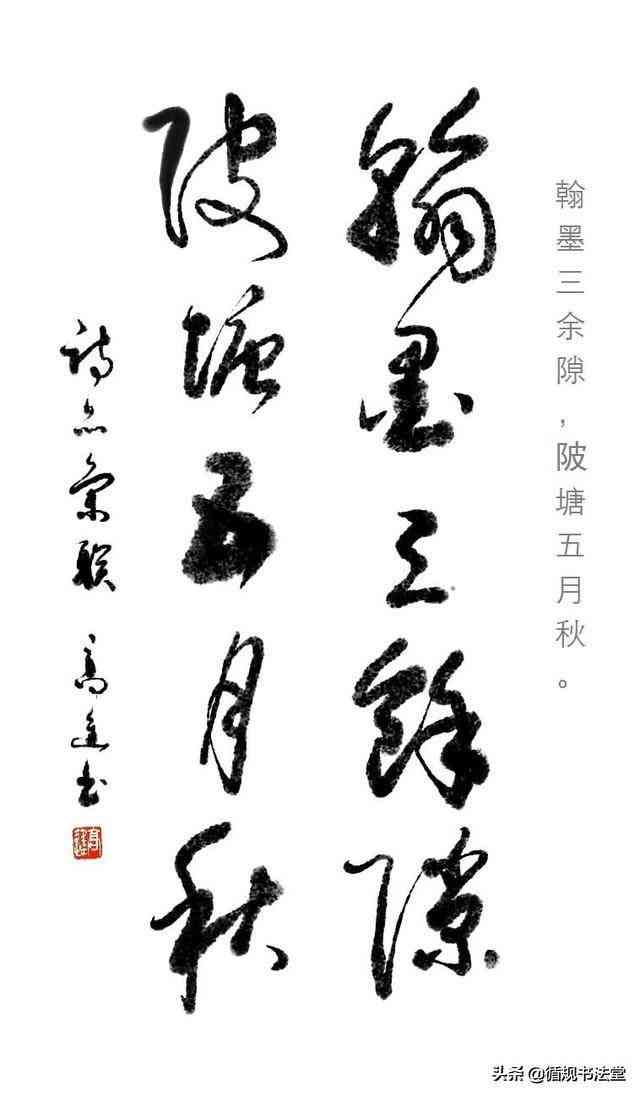 翰墨三余隙，陂塘五月秋。
翰墨三餘隙
陂塘五月秋
联 高進书
头条 @循规书法堂